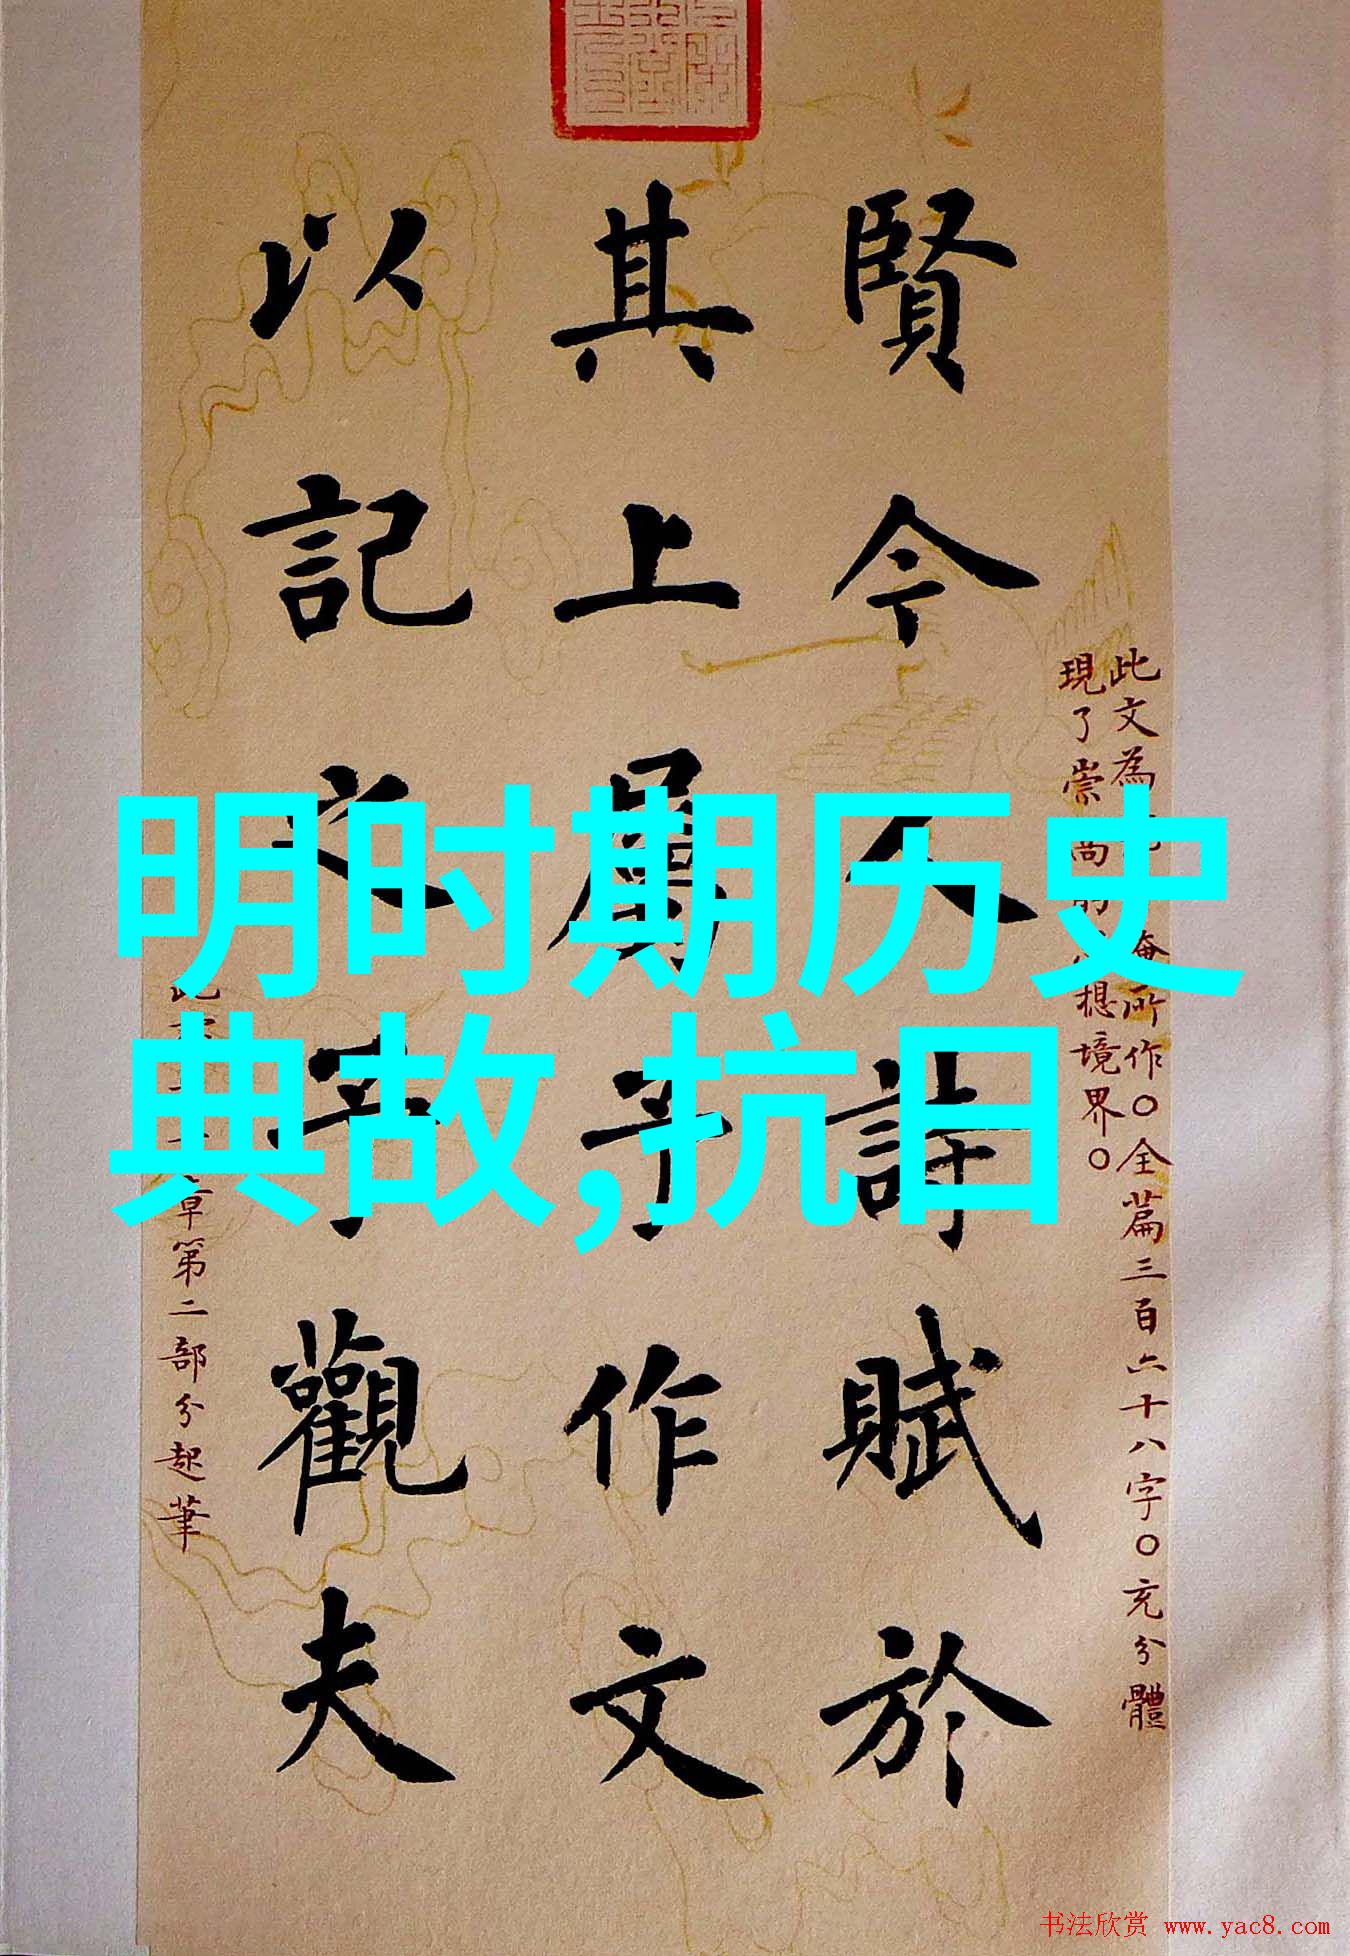 賢今人詩賦於
其上屬予作文
以記之予觀夫
此文為所作〇全篇三百六十八字〇充分體
現了崇想境界〇
章第二部分起筆
明时期历史
典故,抗日
书法欣赏 www.yac8.com